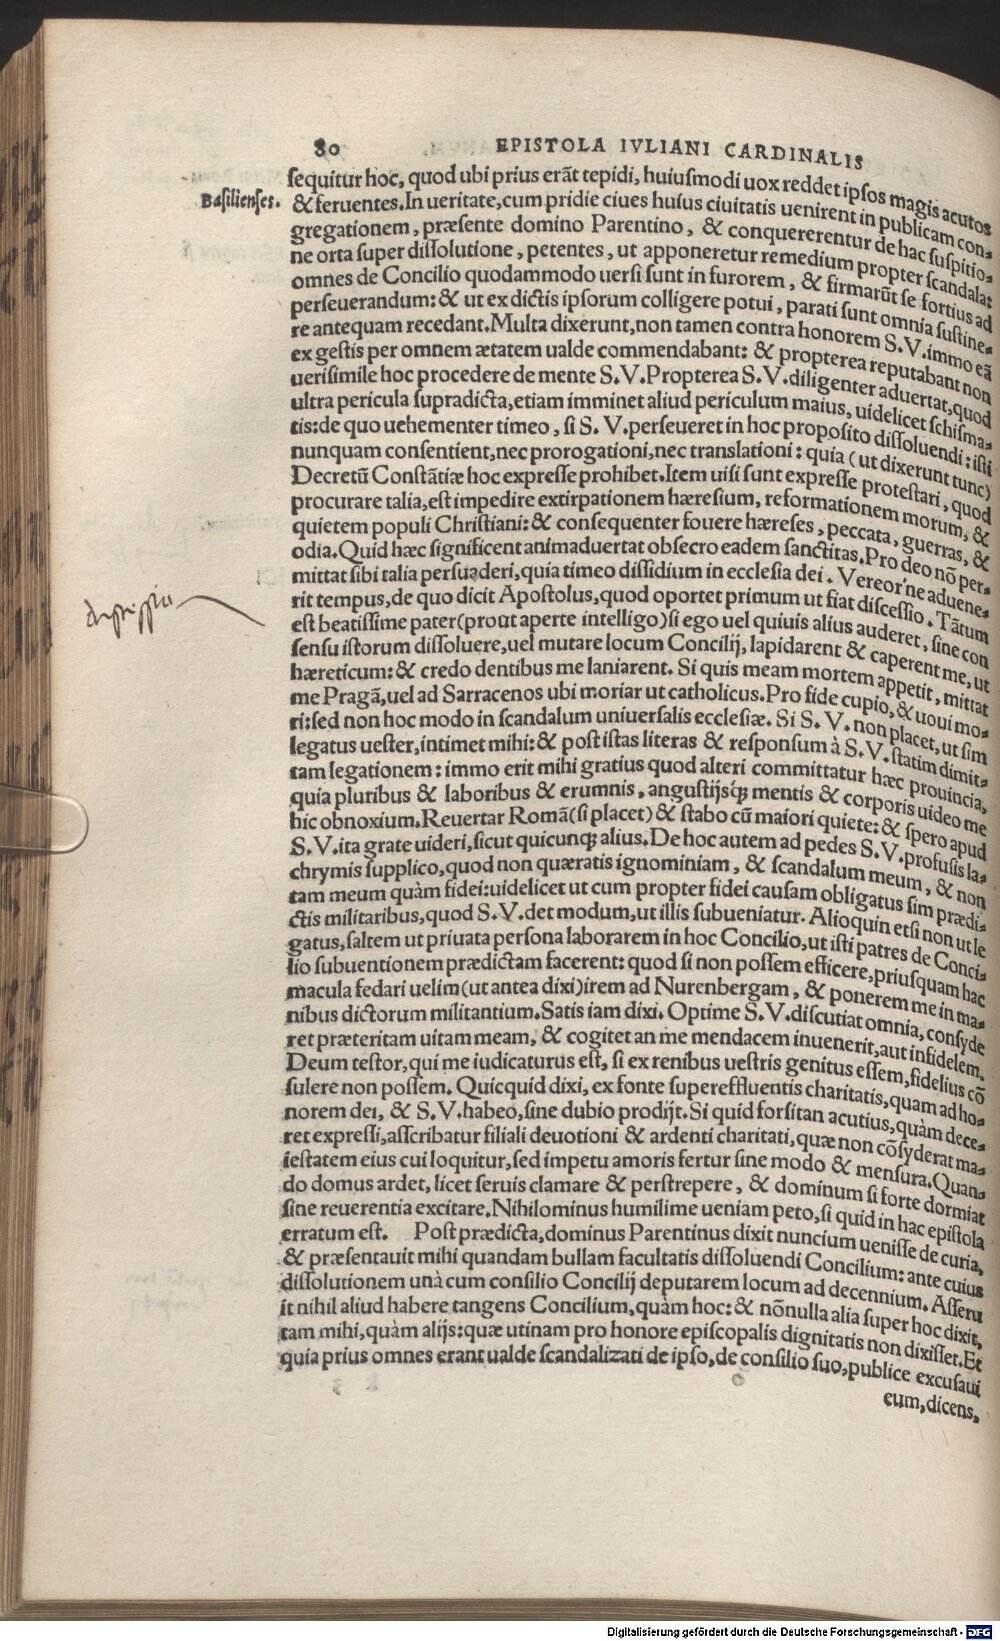 80 EPISTOLA IVLIANI CARDINALIS
sequitur hoc, quod ubi prius erãt tepidi, huiusmodi uox reddet ipsos magis acutos
Basilienses.
& feruentes. In ueritate, cum pridie ciues huius ciuitatis uenirent in publicam con-
gregationem, præsente domino Parentino, & conquererentur de hac suspitio-
ne orta super dissolutione, petentes, ut apponeretur remedium propter scandala:
omnes de Concilio quodammodo uersi sunt in furorem, & firmarũt se fortius ad
perseuerandum: & ut ex dictis ipsorum colligere potui, parati sunt omnia sustine-
re antequam recedant. Multa dixerunt, non tamen contra honorem S. V. immo eã
ex gestis per omnem ætatem ualde commendabant: & propterea reputabant non
uerisimile hoc procedere de mente S. V. Propterea S. V. diligenter aduertat, quod
ultra pericula supradicta, etiam imminet aliud periculum maius, uidelicet schisma-
tis: de quo uehementer timeo, si S. V. perseueret in hoc proposito dissoluendi: isti
nunquam consentient, nec prorogationi, nec translationi: quia (ut dixerunt tunc)
Decretũ Constãtiæ hoc expresse prohibet. Item uisi sunt expresse protestari, quod
procurare talia, est impedire extirpationem hæresium, reformationem morum, &
quietem populi Christiani: & consequenter fouere hæreses, peccata, guerras, &
odia. Quid hæc significent animaduertat obsecro eadem sanctitas. Pro deo nõ per-
mittat sibi talia persuaderi, quia timeo dissidium in ecclesia dei. Vereor ne aduene-
rit tempus, de quo dicit Apostolus, quod oportet primum ut fiat discessio. Tãtum
est beatissime pater (prout aperte intelligo) si ego uel quiuis alius auderet, sine con
sensu istorum dissoluere, uel mutare locum Concilij, lapidarent & caperent me, ut
hæreticum: & credo dentibus me laniarent. Si quis meam mortem appetit, mittat
me Pragã, uel ad Sarracenos ubi moriar ut catholicus. Pro fide cupio, & uoui mo-
ri: sed non hoc modo in scandalum uniuersalis ecclesiæ. Si S. V. non placet, ut sim
legatus uester, intimet mihi: & post istas literas & responsum à S. V. statim dimit-
tam legationem: immo erit mihi gratius quod alteri committatur hæc prouincia,
quia pluribus & laboribus & erumnis, angustijsq; mentis & corporis uideo me
hic obnoxium. Reuertar Romã (si placet) & stabo cũ maiori quiete: & spero apud
S. V. ita grate uideri, sicut quicunq; alius. De hoc autem ad pedes S. V. profusis la-
chrymis supplico, quod non quæratis ignominiam, & scandalum meum, & non
tam meum quàm fidei: uidelicet ut cum propter fidei causam obligatus sim prædi-
ctis militaribus, quod S. V. det modum, ut illis subueniatur. Alioquin etsi non ut le
gatus, saltem ut priuata persona laborarem in hoc Concilio, ut isti patres de Conci-
lio subuentionem prædictam facerent: quod si non possem efficere, priusquam hac
macula fedari uelim (ut antea dixi) irem ad Nurenbergam, & ponerem me in ma-
nibus dictorum militantium. Satis iam dixi. Optime S. V. discutiat omnia, consyde
ret præteritam uitam meam, & cogitet an me mendacem inuenerit, aut infidelem.
Deum testor, qui me iudicaturus est, si ex renibus uestris genitus essem, fidelius cõ
sulere non possem. Quicquid dixi, ex fonte supereffluentis charitatis, quam ad ho-
norem dei, & S. V. habeo, sine dubio prodijt. Si quid forsitan acutius, quàm dece-
ret expressi, asscribatur filiali deuotioni & ardenti charitati, quæ non cõsyderat ma-
iestatem eius cui loquitur, sed impetu amoris fertur sine modo & mensura. Quan-
do domus ardet, licet seruis clamare & perstrepere, & dominum si forte dormiat
sine reuerentia excitare. Nihilominus humilime ueniam peto, si quid in hac epistola
erratum est. Post prædicta, dominus Parentinus dixit nuncium uenisse de curia,
& præsentauit mihi quandam bullam facultatis dissoluendi Concilium: ante cuius
dissolutionem unà cum consilio Concilij deputarem locum ad decennium. Asseru
it nihil aliud habere tangens Concilium, quàm hoc: & nõnulla alia super hoc dixit,
tam mihi, quàm alijs: quæ utinam pro honore episcopalis dignitatis non dixisset. Et
quia prius omnes erant ualde scandalizati de ipso, de consilio suo, publice excusaui
eum, dicens,
Digitalisierung gefördert durch die Deutsche Forschungsgemeinschaft - DFG